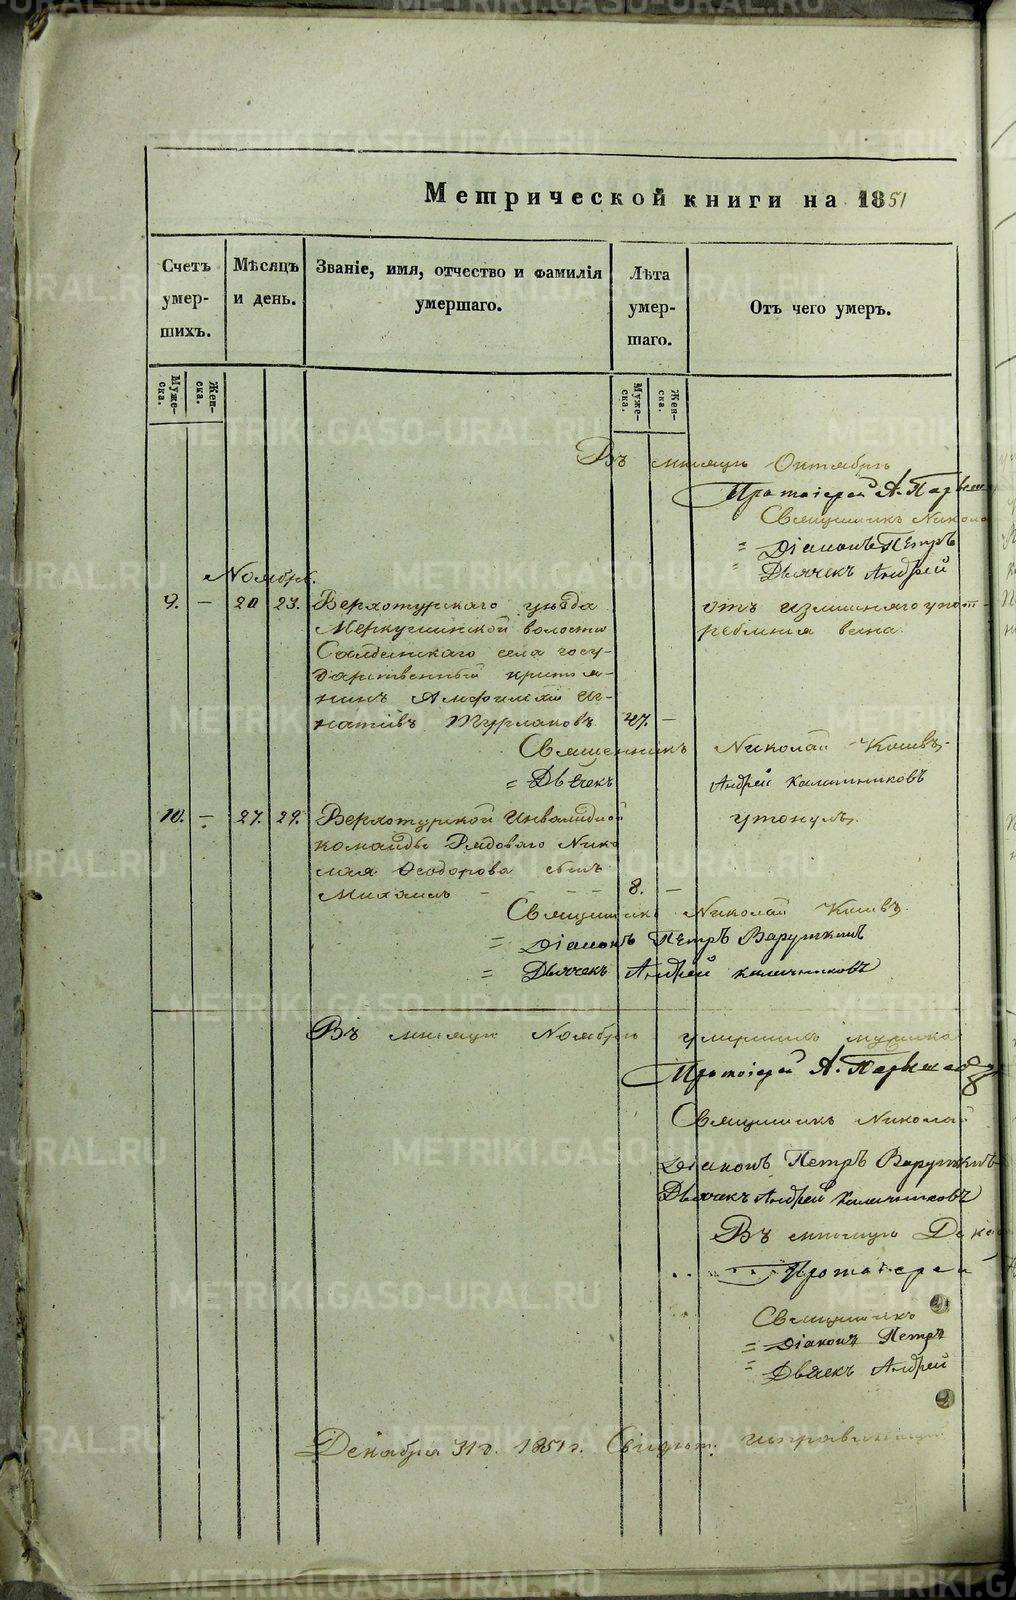 Метрической книги на 1851
Счетъ умер-шихъ.
Мѣсяцъ и день.
Званіе, имя, отчество и фамилія умершаго.
Лѣта умер-шаго.
Отъ чего умеръ.
Муже-ска.
Жен-ска.
Муже-ска.
Жен-ска.
Въ мѣсяцѣ Октябрѣ
Протоіерей А.
Священникъ Никола
= Діаконъ Петръ
= Дьячекъ Андрей
Ноябрь.
9. — 20 23. Верхотурскаго уѣзда отъ излишняго упот-
Меркушинской волости ребленія вина.
Салбинскаго села госу-
дарственный крестья-
нинъ Амфилохій Иг-
натіевъ Турлаковъ 47. —
Священникъ Николай
= Дьячекъ Андрей Калачниковъ
10. — 27. 29. Верхотурской Инвалидной утонулъ.
команды Рядоваго Нико
лая Ѳеодорова сынъ
Михаилъ - - - - 8. —
Священникъ Николай
= Діаконъ Петръ Варушкинъ
= Дьячекъ Андрей Калачниковъ
Въ мѣсяцѣ Ноябрѣ умершихъ мужска
Протоіерей А.
Священникъ Николай
Діаконъ Петръ Варушкинъ
Дьячекъ Андрей Калачниковъ
Въ мѣсяцѣ Декаб
Протоіерей
Священникъ
= Діаконъ Петръ
= Дьячекъ Андрей
Декабря 31 д. 1851 г. Свидѣт.
METRIKI.GASO-URAL.RU